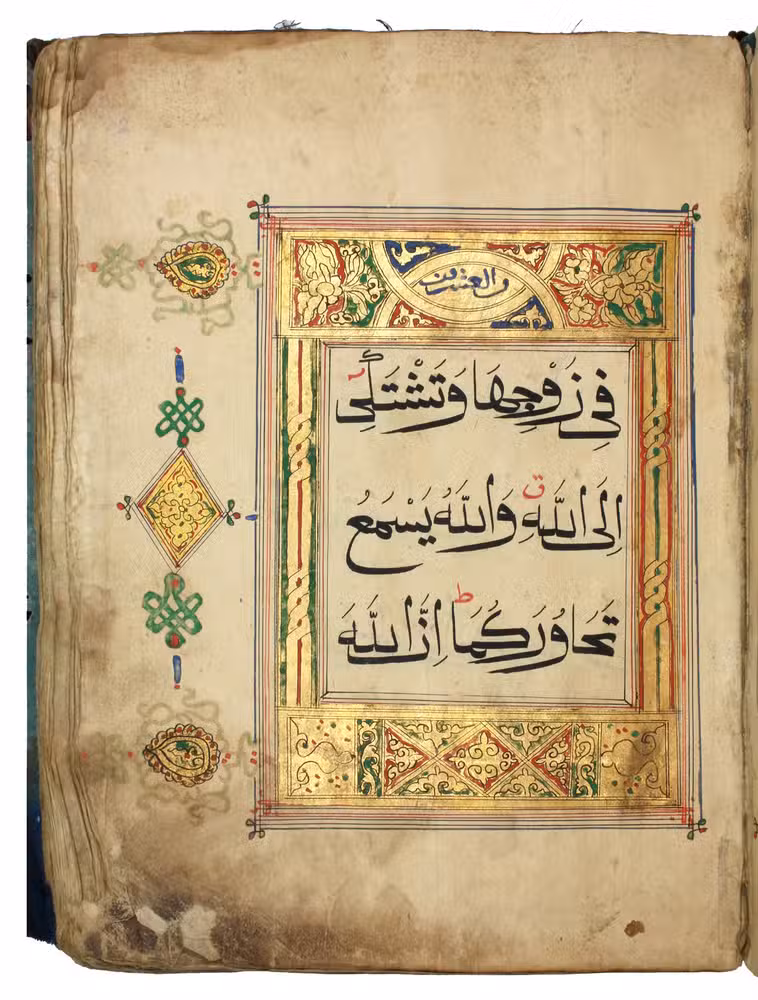 والعشرون
فِي زَوْجِهَا وَتَشْتَكِي
ق
اِلَى اللَّهِ وَاللَّهُ يَسْمَعُ
ط
تَحَاوُرَكُمَا اِنَّ اللَّهَ